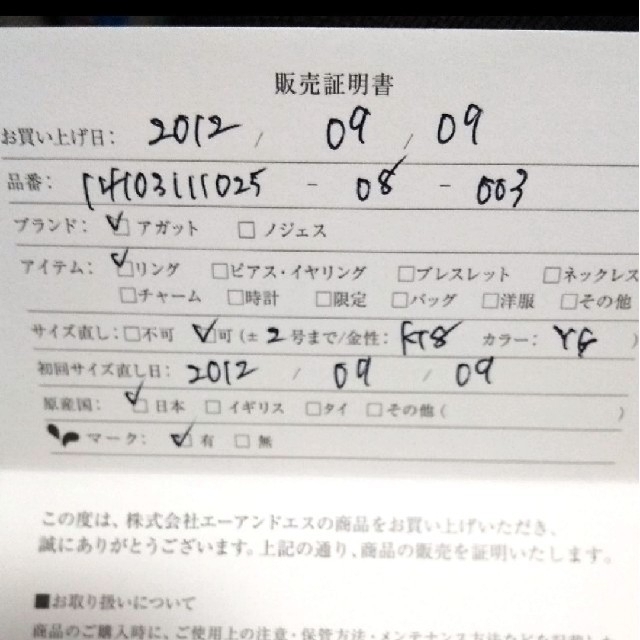 販売証明書
お買い上げ日： 2012 / 09 / 09
品番： 14103111025 - 08 - 003
ブランド： ☑ アガット □ ノジェス
アイテム： ☑リング □ピアス・イヤリング □ブレスレット □ネックレス
□チャーム □時計 □限定 □バッグ □洋服 □その他
サイズ直し：□不可 ☑可（± 2 号まで/金性： K18 カラー： YG ）
初回サイズ直し日： 2012 / 09 / 09
原産国： ☑ 日本 □ イギリス □タイ □その他（ ）
マーク： ☑ 有 □ 無
この度は、株式会社エーアンドエスの商品をお買い上げいただき、
誠にありがとうございます。上記の通り、商品の販売を証明いたします。
■お取り扱いについて
商品のご購入時に、ご使用上の注意・保管方法・メンテナンス方法などを記載した